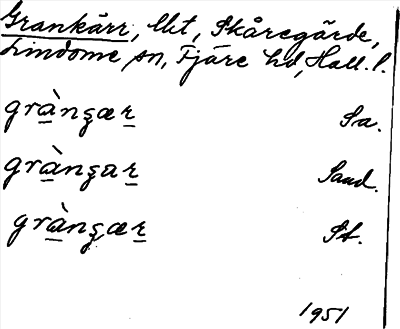 Grankärr, lht, Skåregärde,
Lindome sn, Fjäre hd, Hall. l.
gràngær Sa.
gràngar Sand.
gràngær St.
1951